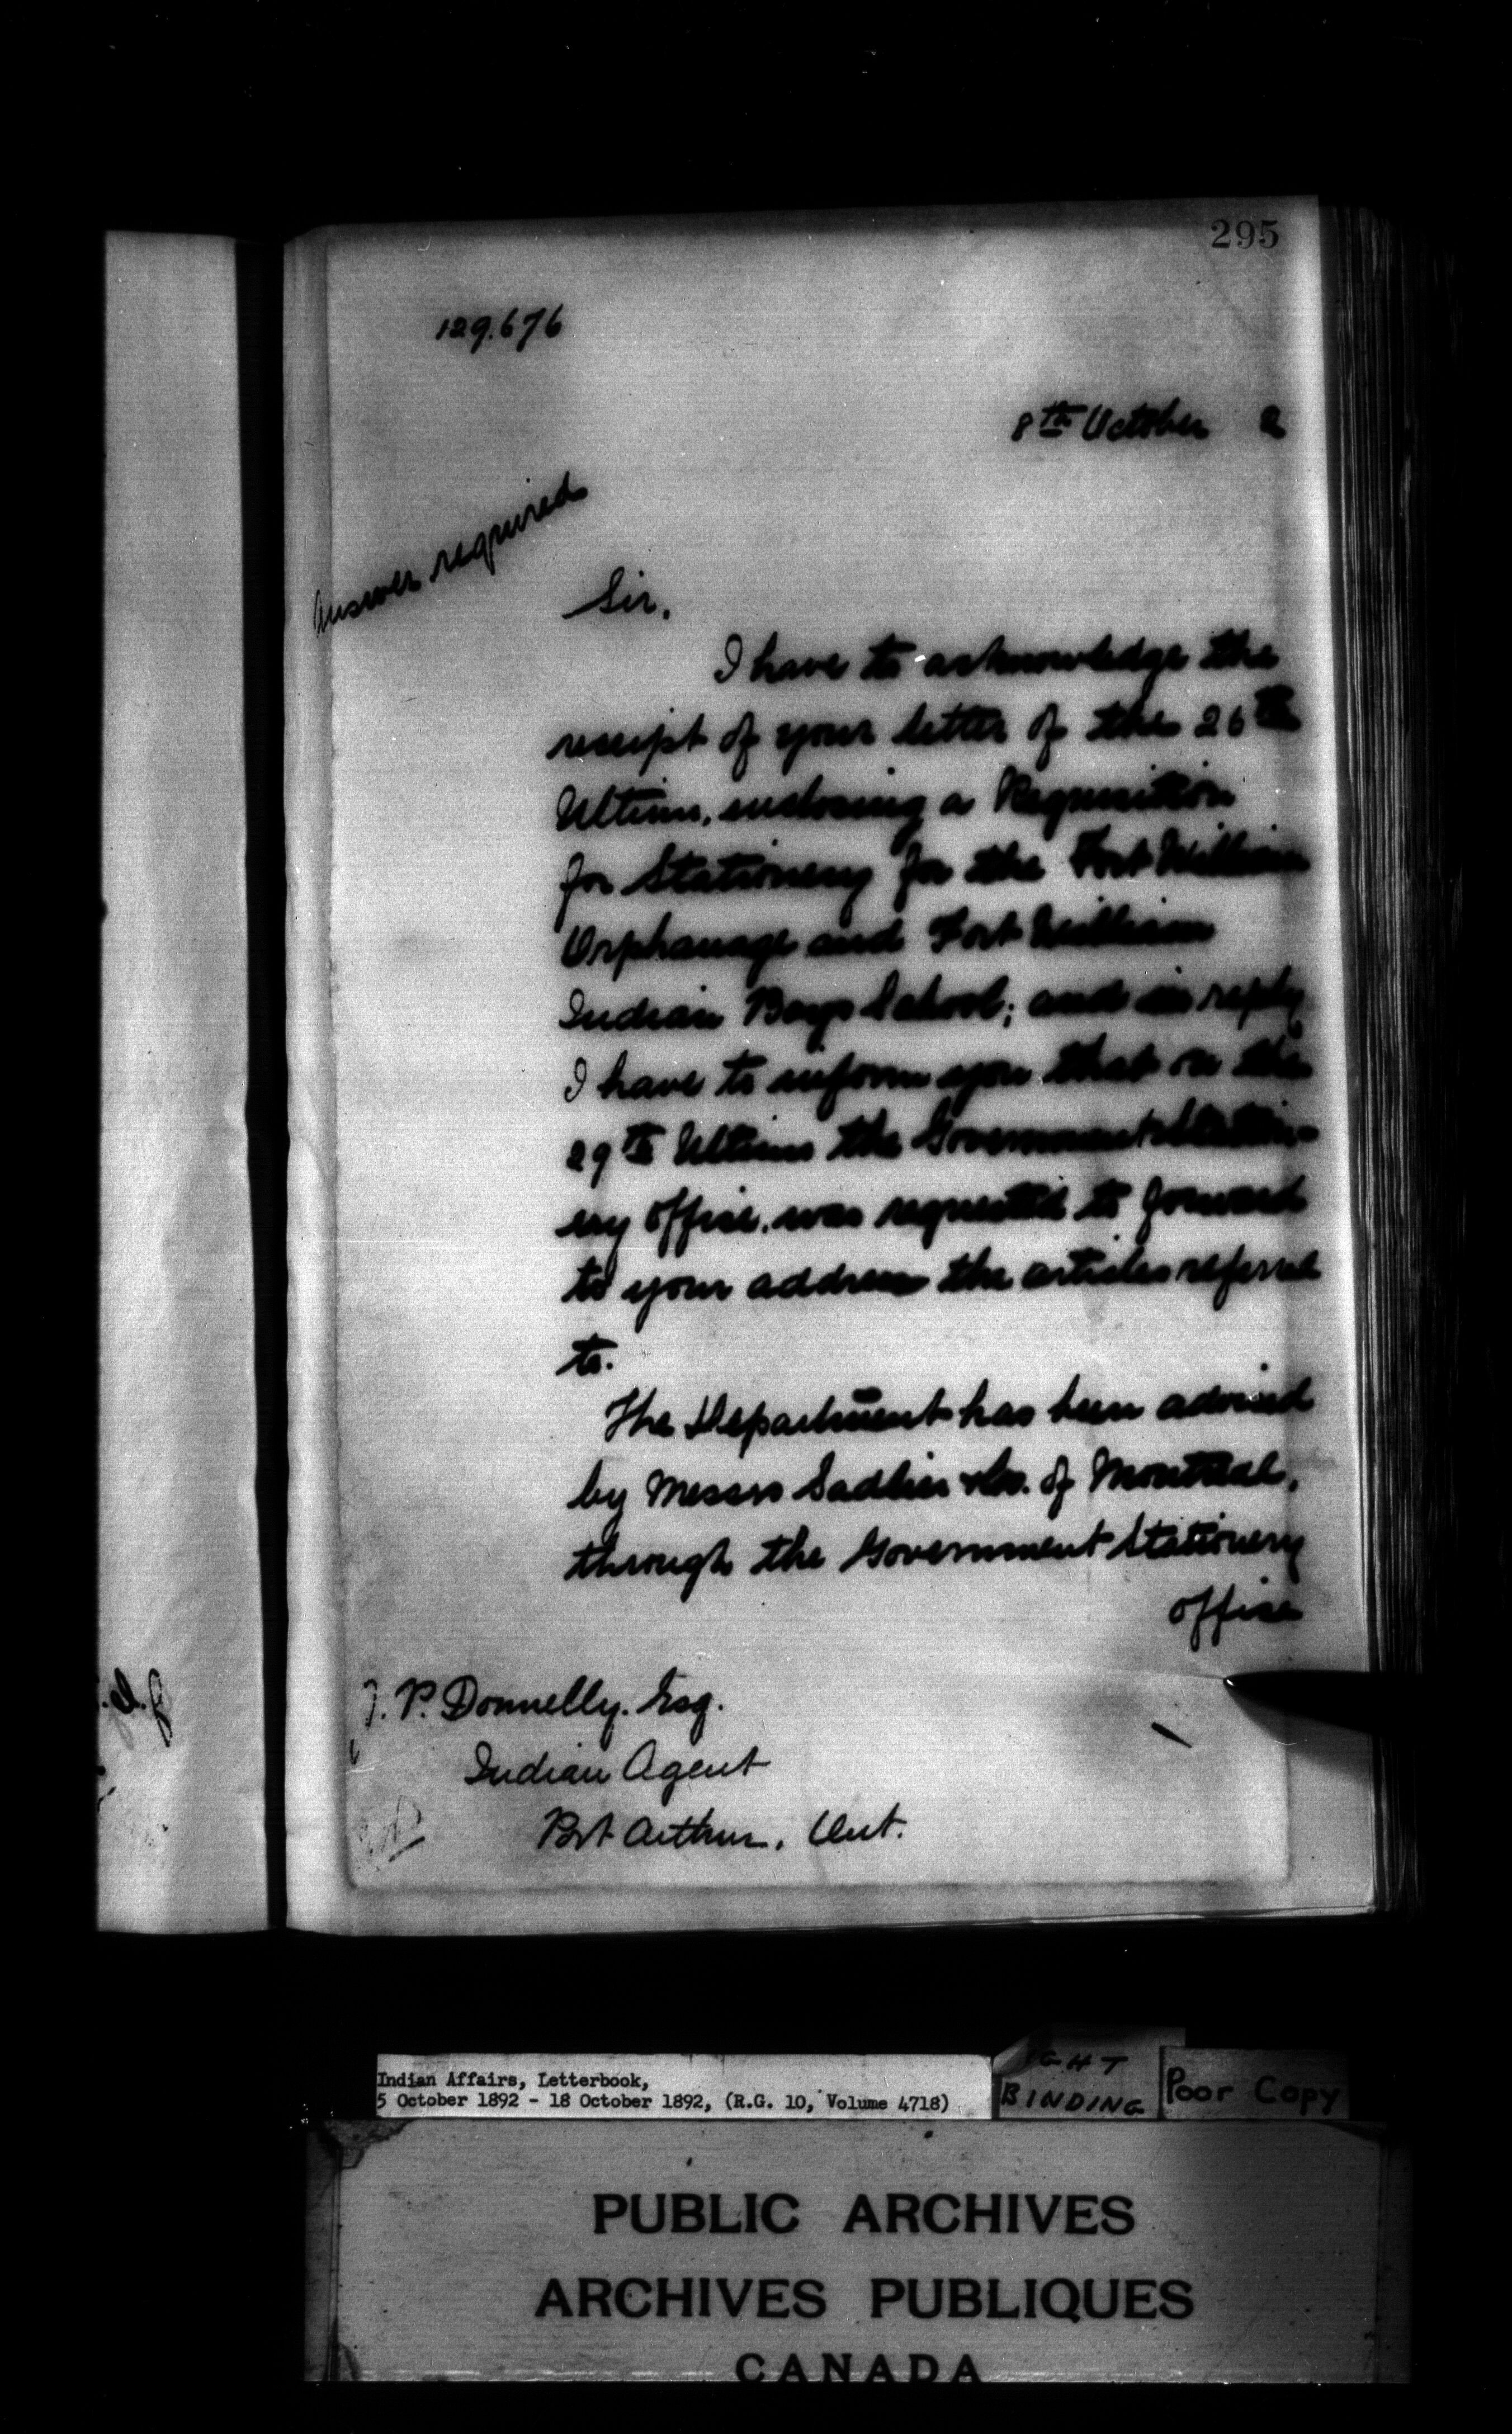 295
129.676
8th October 2
Answer required
Sir,
I have to acknowledge the
receipt of your letter of the 26th
Ultimo, enclosing a Requisition
for Stationery for the Fort William
Orphanage and Fort William
Indian Boys School; and in reply
I have to inform you that on the
29th Ultimo the Government Station-
ery office, was requested to forward
to your address the articles referred
to.
The Department has been advised
by Messrs Sadlier & Co. of Montreal,
through the Government Stationery
office
J. P. Donnelly. Esq.
Indian Agent
Port Arthur, Ont.
Indian Affairs, Letterbook,
5 October 1892 - 18 October 1892, (R.G. 10, Volume 4718)
BINDING
Poor Copy
PUBLIC ARCHIVES
ARCHIVES PUBLIQUES
CANADA